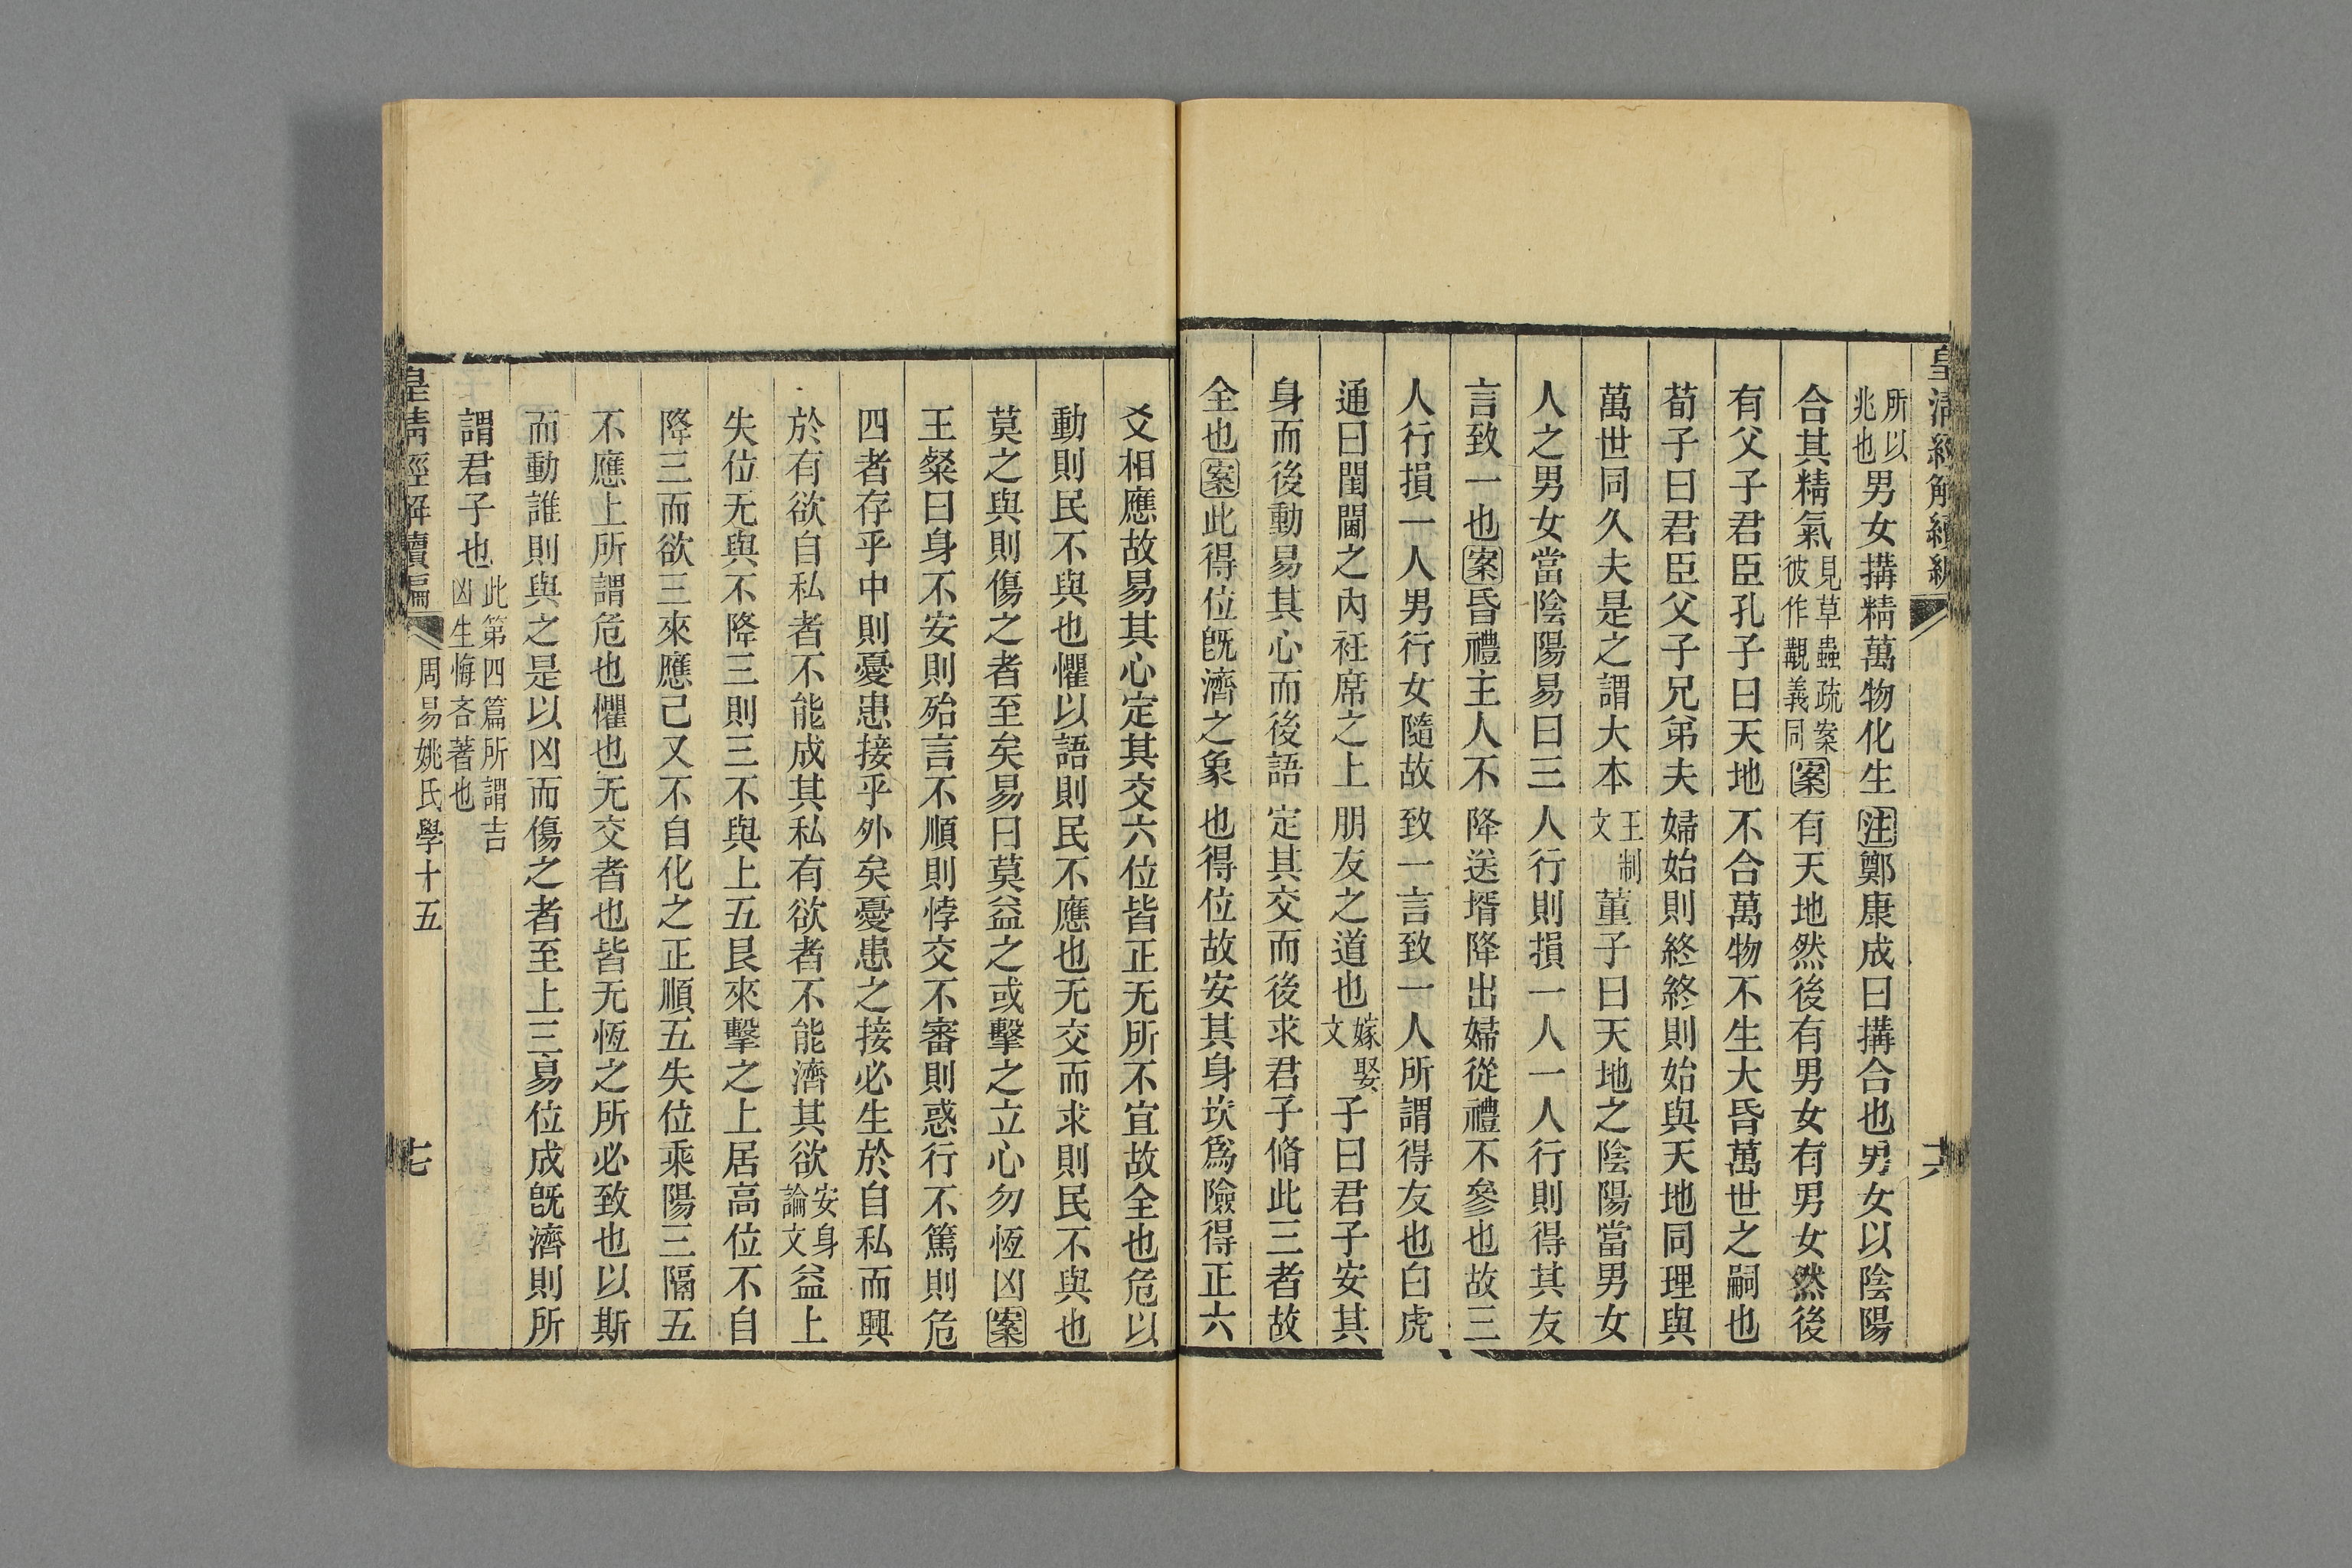 皇清經解續編
十六
所以兆也男女搆精萬物化生注鄭康成曰搆合也男女以陰陽
合其精氣見草蟲疏案彼作覯義同案有天地然後有男女有男女然後
有父子君臣孔子曰天地不合萬物不生大昏萬世之嗣也
荀子曰君臣父子兄弟夫婦始則終終則始與天地同理與
萬世同久夫是之謂大本王制文董子曰天地之陰陽當男女
人之男女當陰陽易曰三人行則損一人一人行則得其友
言致一也案昏禮主人不降送壻降出婦從禮不參也故三
人行損一人男行女隨故致一言致一人所謂得友也白虎
通曰閨閫之內衽席之上朋友之道也嫁娶文子曰君子安其
身而後動易其心而後語定其交而後求君子脩此三者故
全也案此得位旣濟之象也得位故安其身坎爲險得正六
爻相應故易其心定其交六位皆正无所不宜故全也危以
動則民不與也懼以語則民不應也无交而求則民不與也
莫之與則傷之者至矣易曰莫益之或擊之立心勿恆凶案
王粲曰身不安則殆言不順則悖交不審則惑行不篤則危
四者存乎中則憂患接乎外矣憂患之接必生於自私而興
於有欲自私者不能成其私有欲者不能濟其欲安身論文益上
失位无與不降三則三不與上五艮來擊之上居高位不自
降三而欲三來應己又不自化之正順五失位乘陽三隔五
不應上所謂危也懼也无交者也皆无恆之所必致也以斯
而動誰則與之是以凶而傷之者至上三易位成旣濟則所
謂君子也此第四篇所謂吉凶生悔吝著也
皇清經解續編
周易姚氏學十五
七